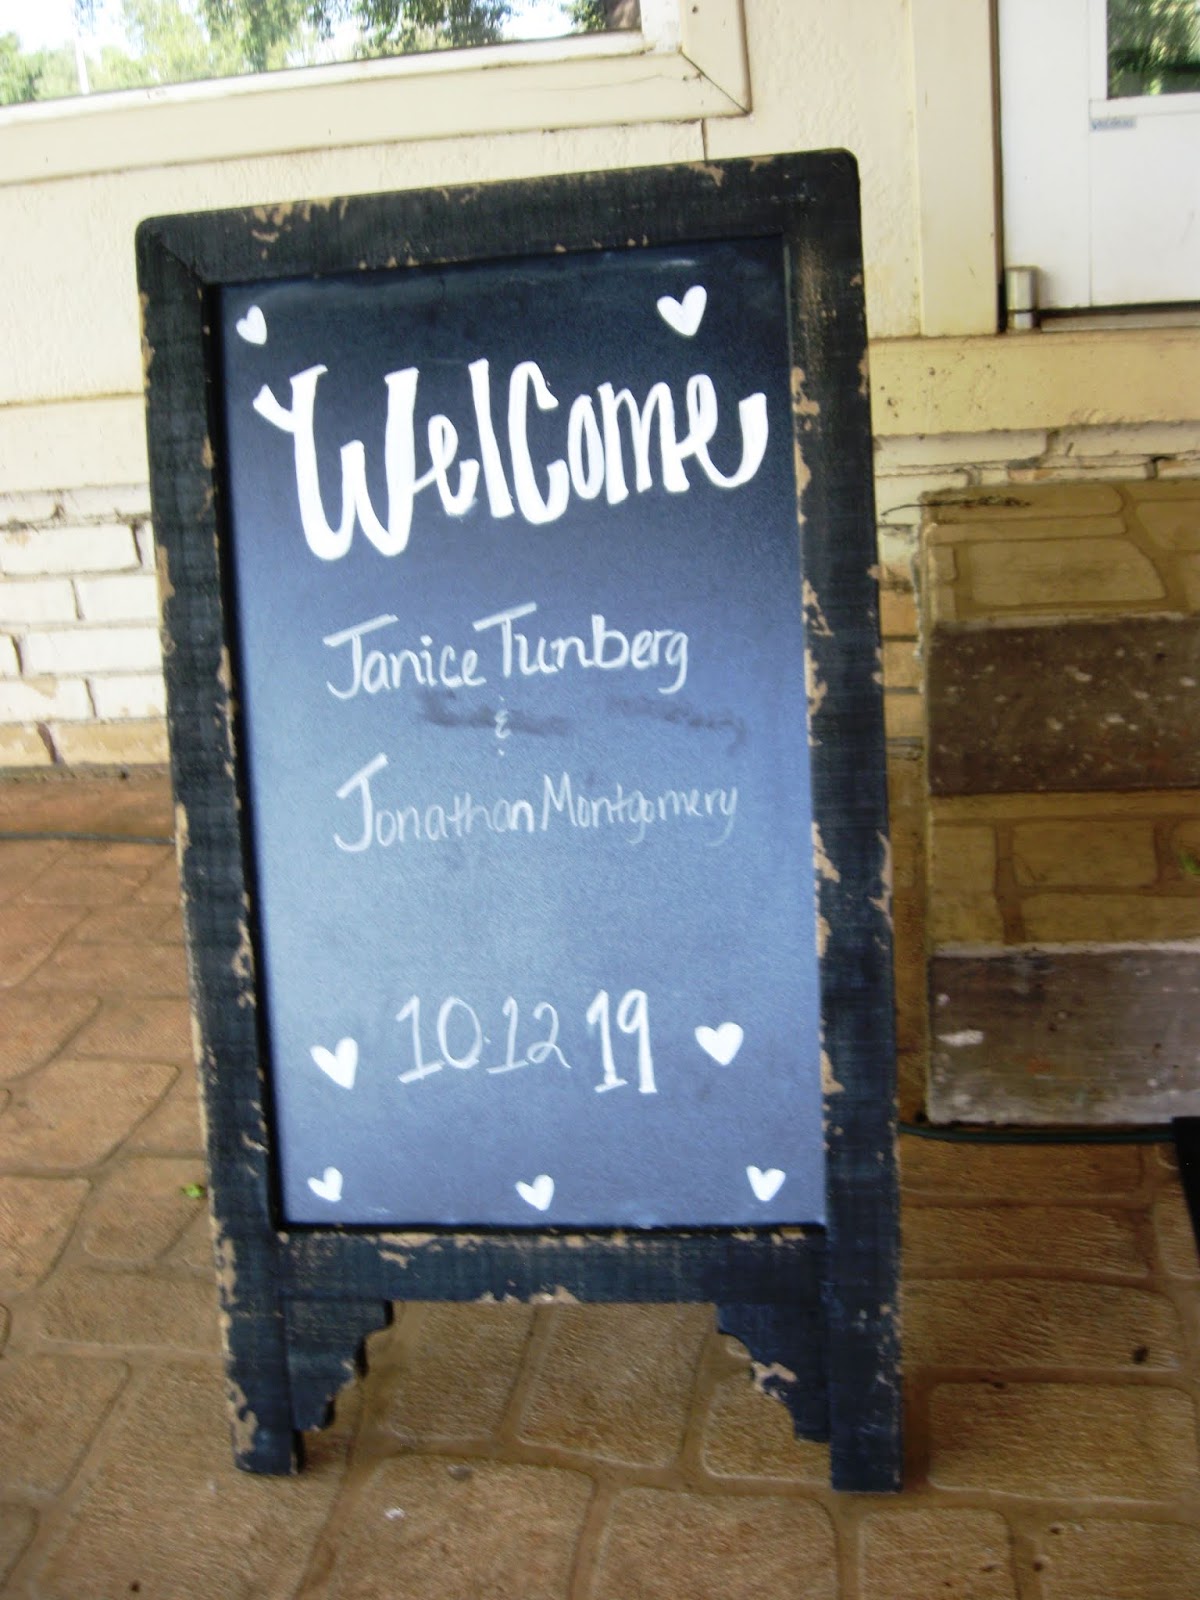 Welcome
Janice Tunberg
&
Jonathan Montgomery
10.12 19